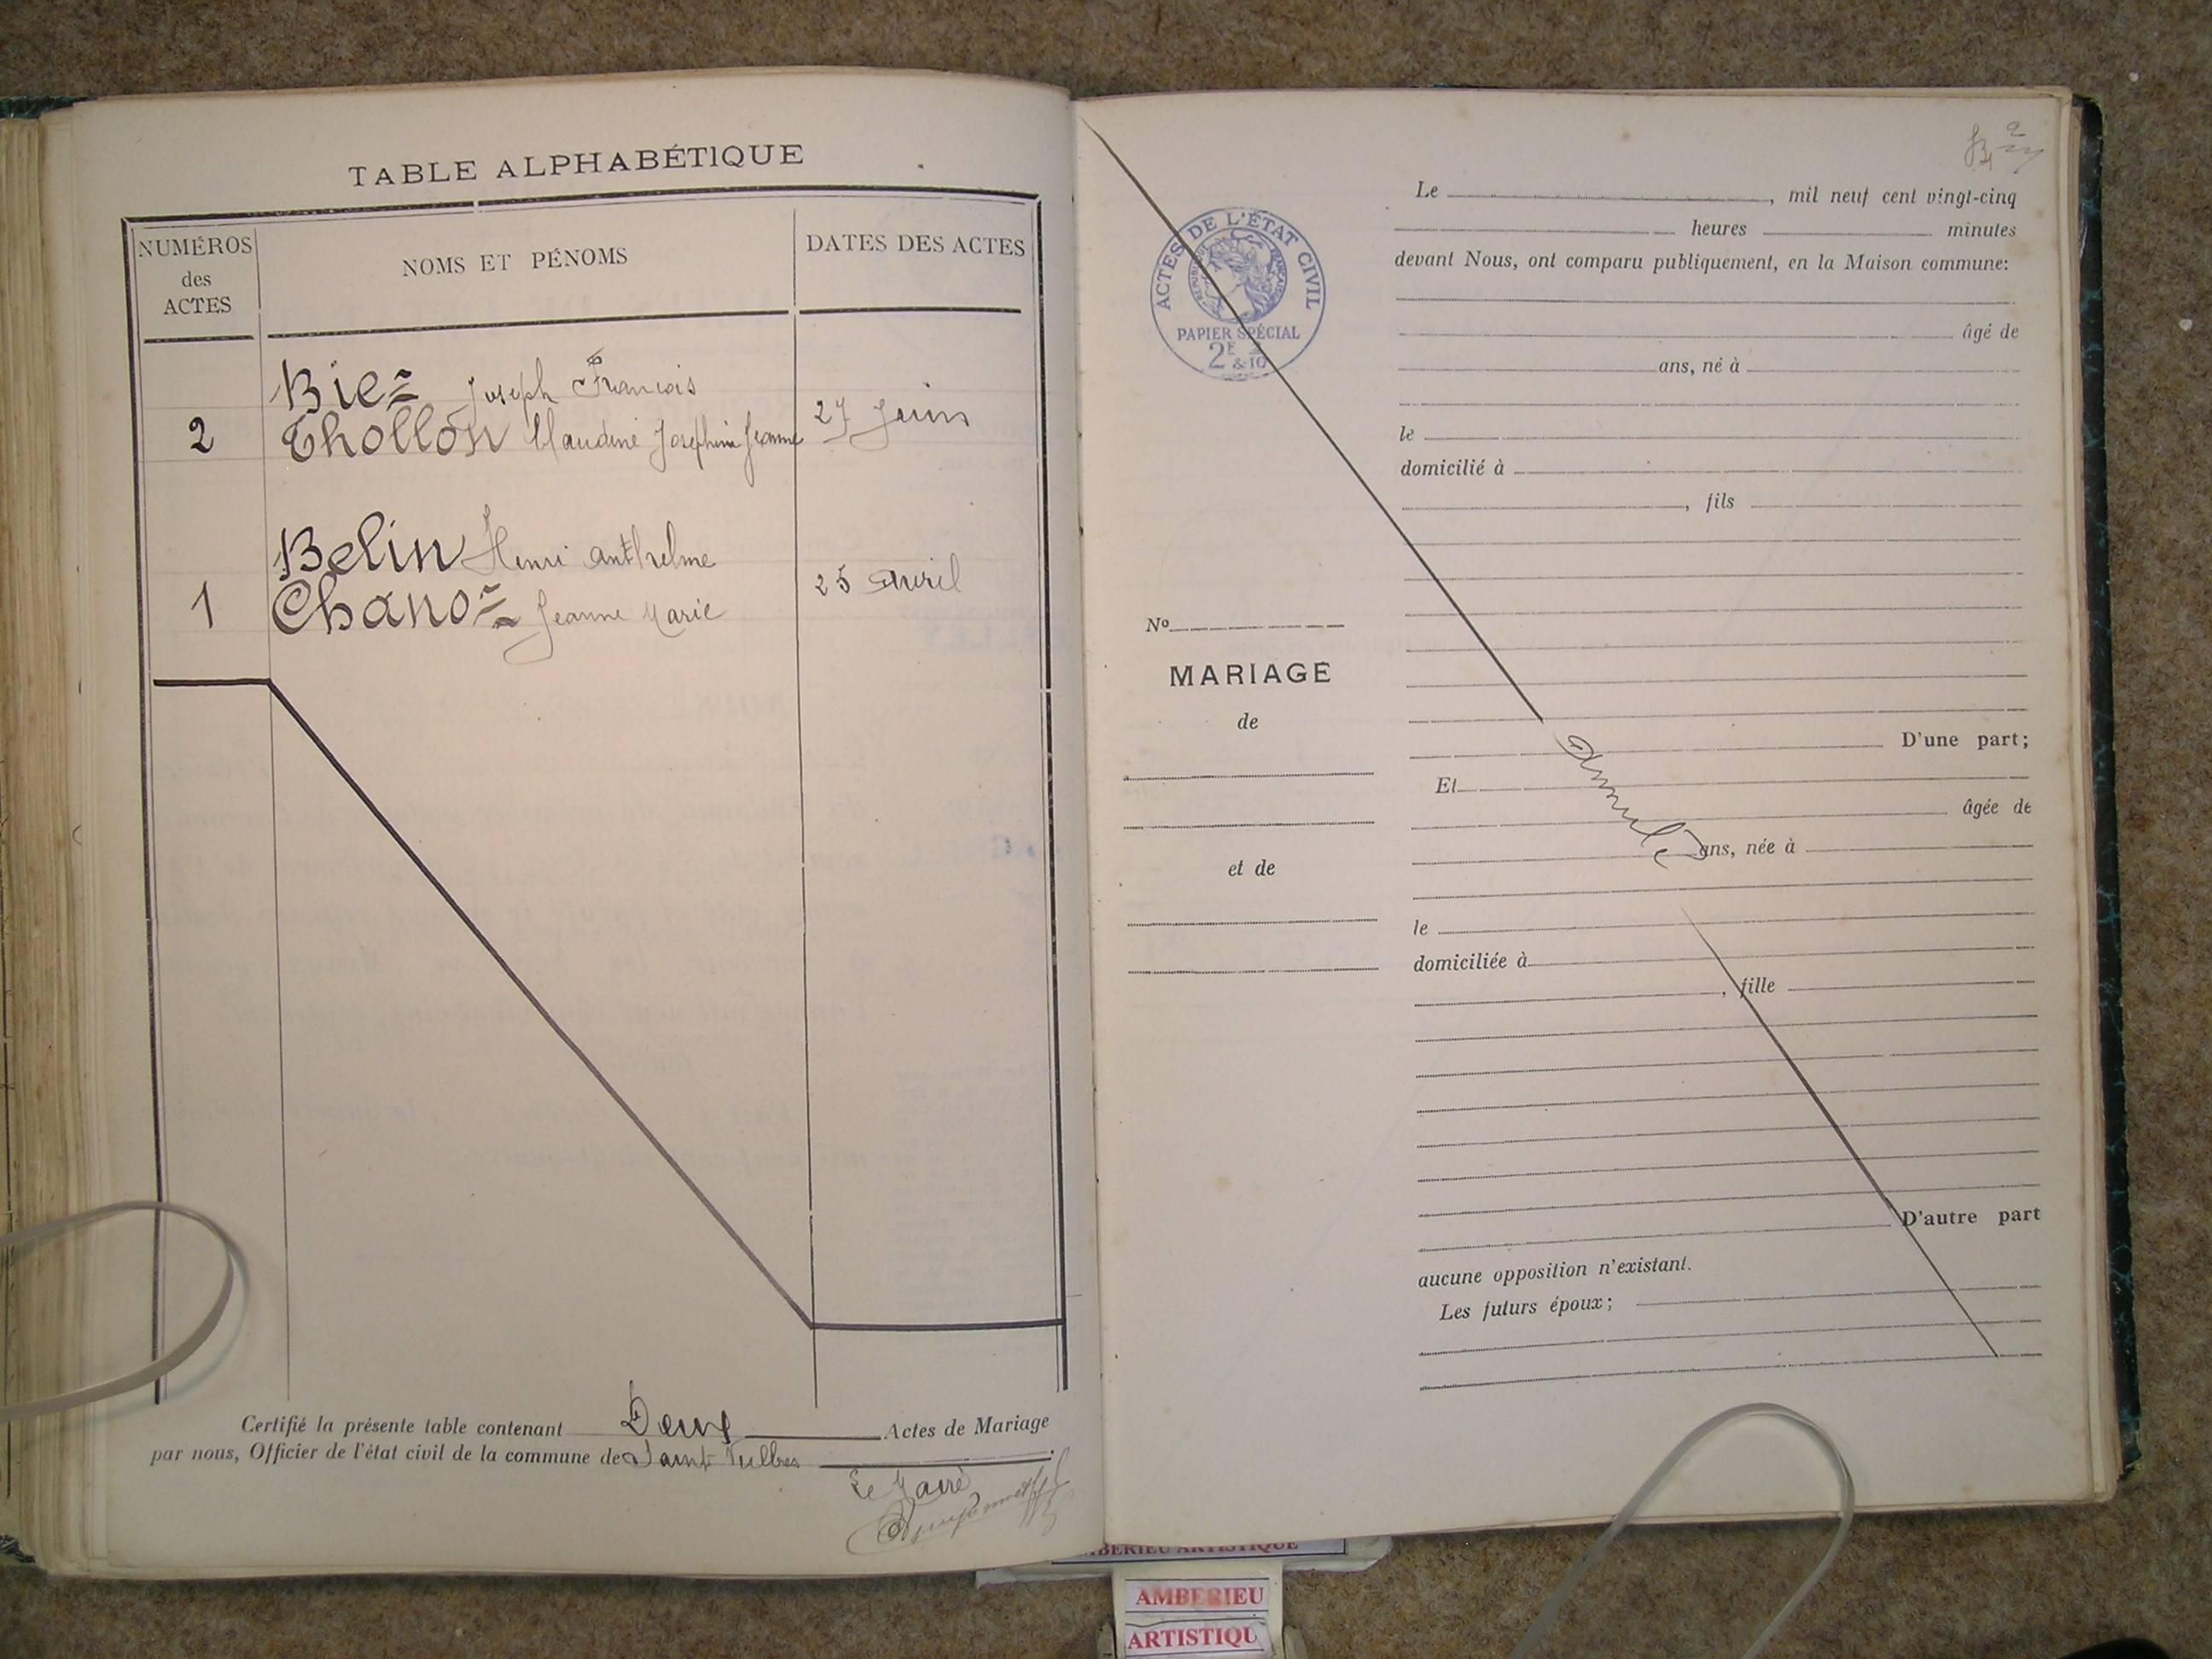 TABLE ALPHABÉTIQUE
NUMÉROS
des
ACTES
NOMS ET PÉNOMS
DATES DES ACTES
Bie= Joseph Francois
2 Thollon Claudine Josephine Jeanne 27 Juin
Belin Henri Anthelme
1 Chano= Jeanne Marie 25 Avril
Certifié la présente table contenant Deux Actes de Mariage
par nous, Officier de l'état civil de la commune de Saint Vulbas.
Le Maire
ACTES DE L'ÉTAT CIVIL
RÉPUBLIQUE FRANÇAISE
PAPIER SPÉCIAL
2E
&10
No
MARIAGE
de
et de
Le , mil neuf cent vingt-cinq
heures minutes
devant Nous, ont comparu publiquement, en la Maison commune:
âgé de
ans, né à
le
domicilié à
, fils
D'une part;
Et
âgée de
Annulé
ans, née à
le
domiciliée à
, fille
D'autre part
aucune opposition n'existant.
Les futurs époux;
AMBERIEU ARTISTIQUE
AMBERIEU
ARTISTIQU